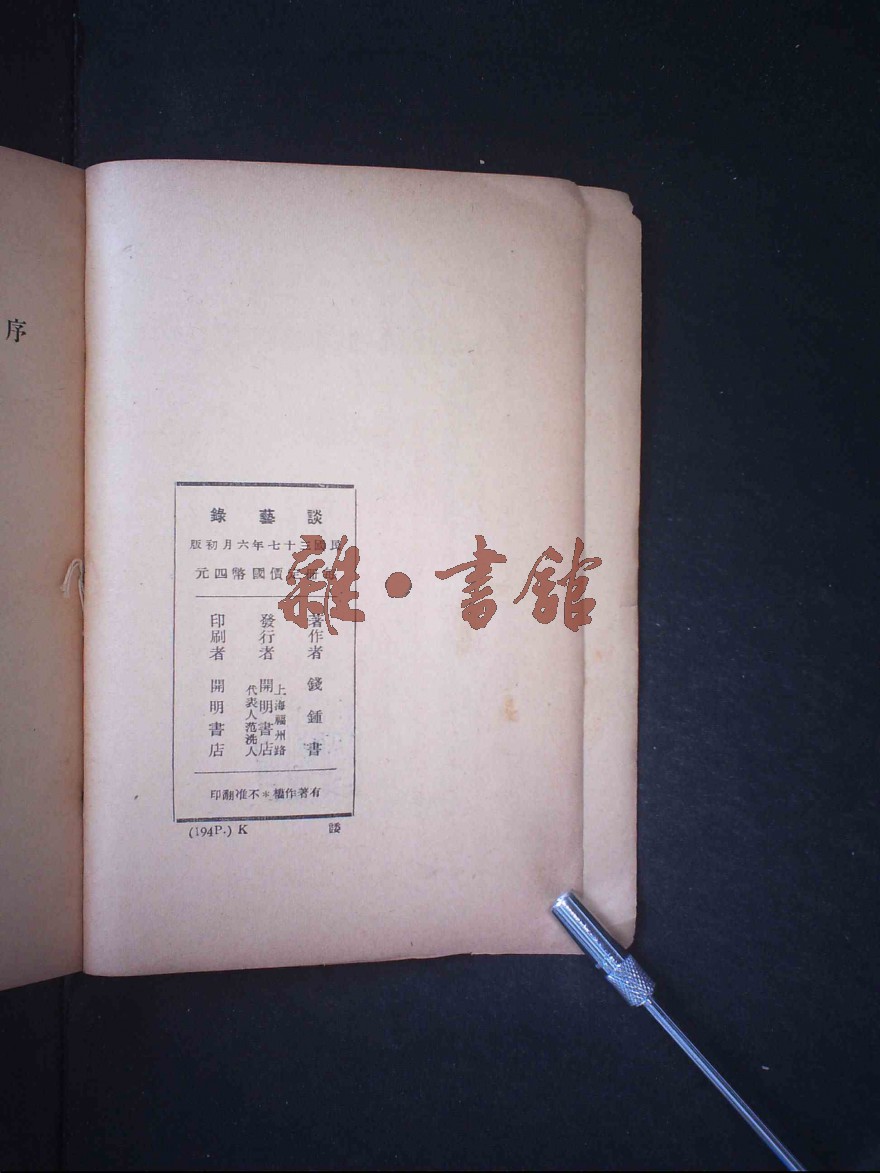 序
談藝錄
民國三十七年六月初版
冊定價國幣四元
著作者 錢鍾書
發行者 上海福州路
開明書店
代表人范洗人
印刷者 開明書店
有著作權＊不准翻印
(194P.) K
雜·書館